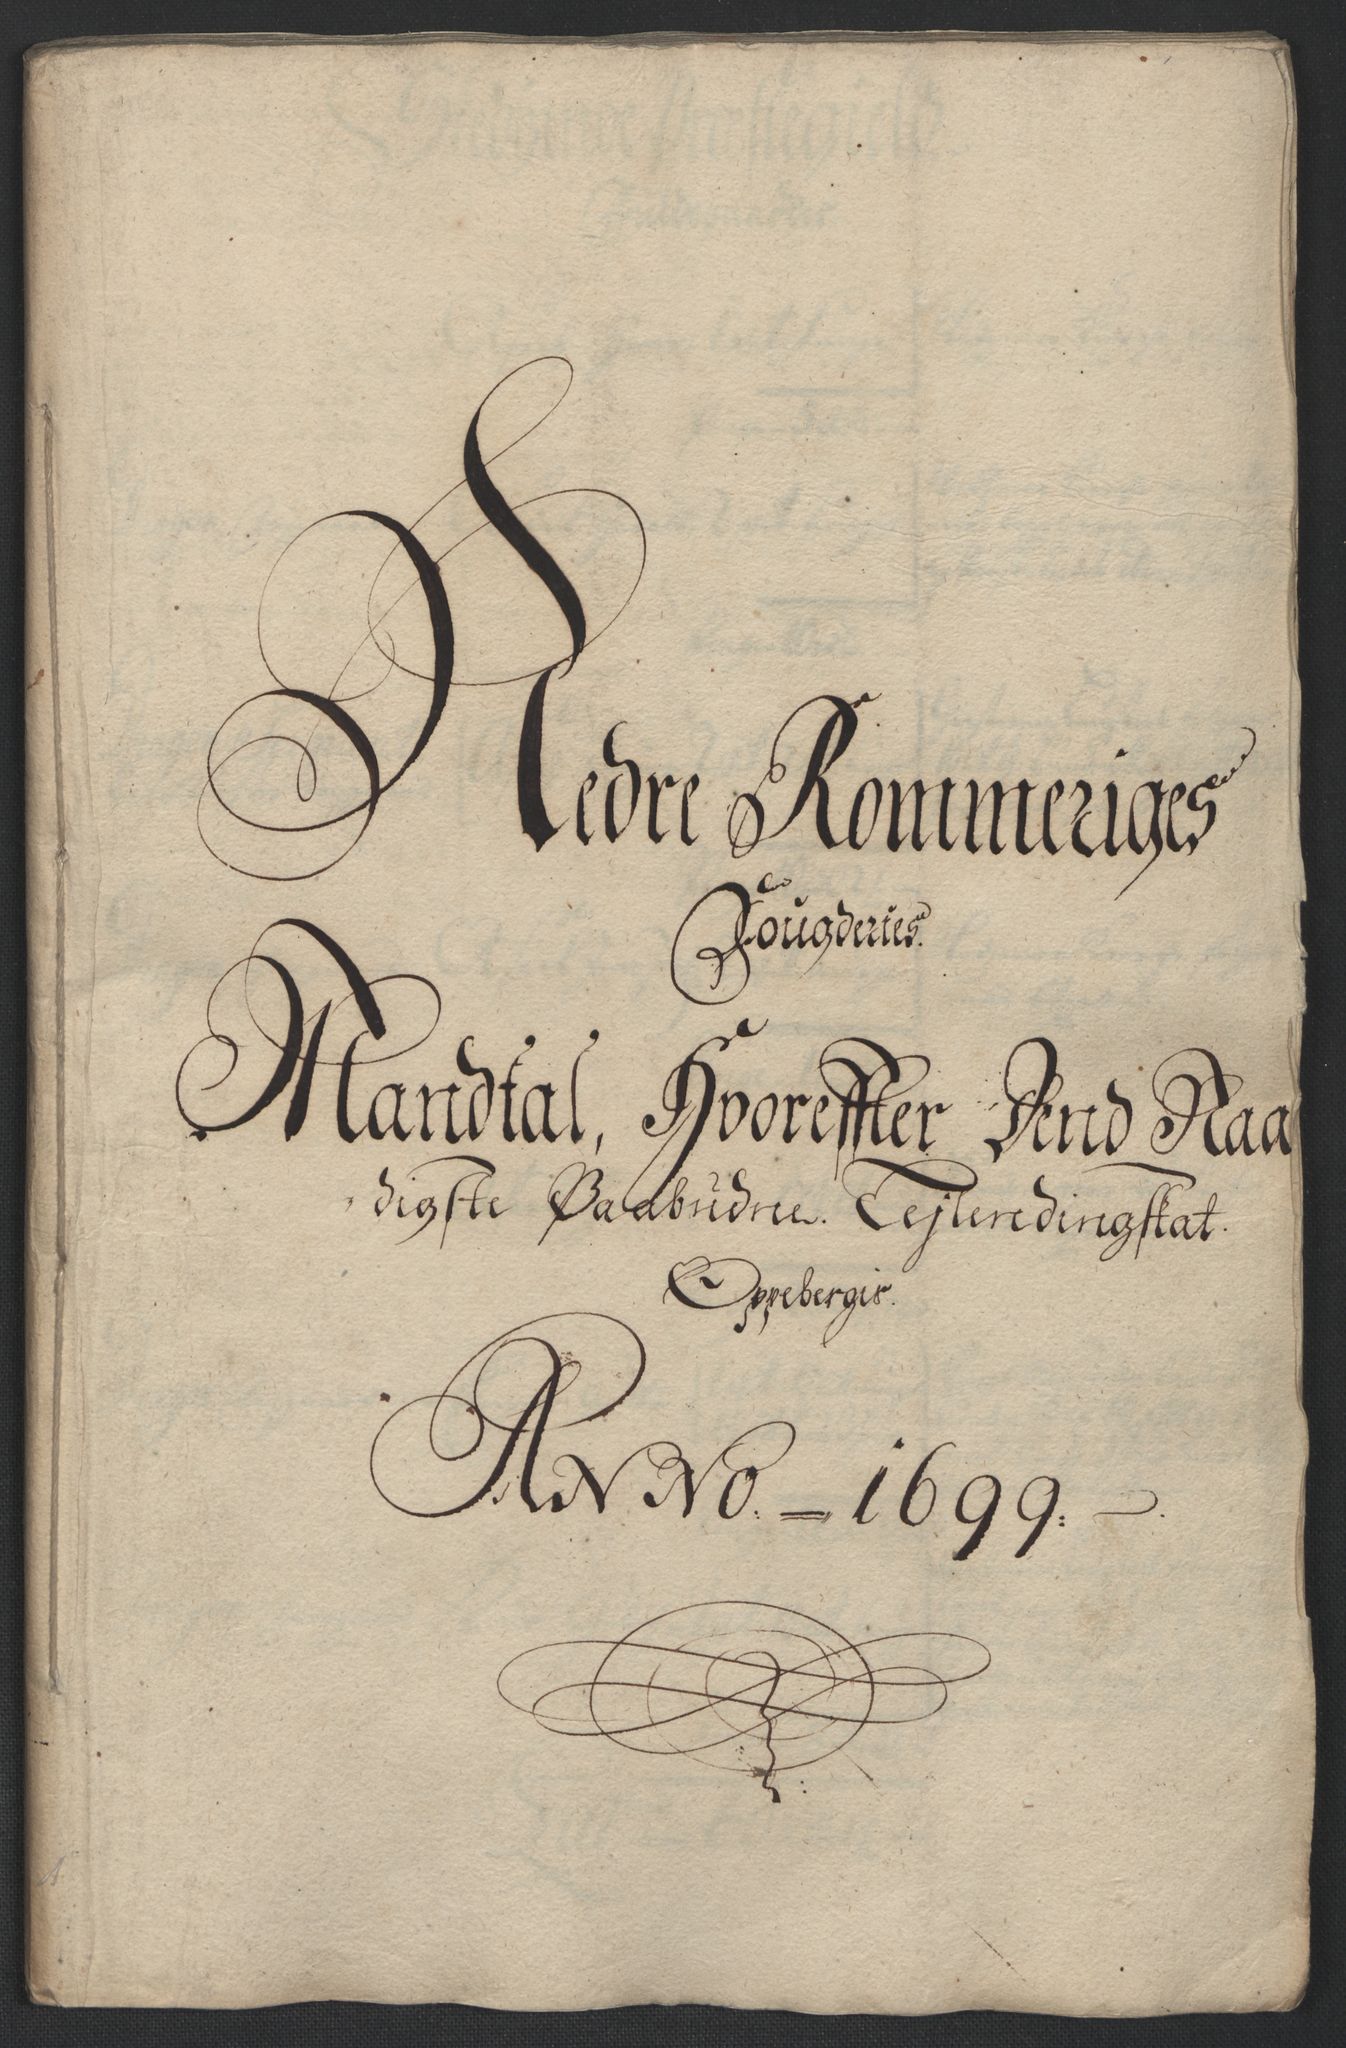 Nedre Rommeriges
Fougderies.
Mandtal, Hvoreffter Dend Naa
digste Paabudne. Tejleredingskat.
Oppebergis.
ANNO. = 1699. —.